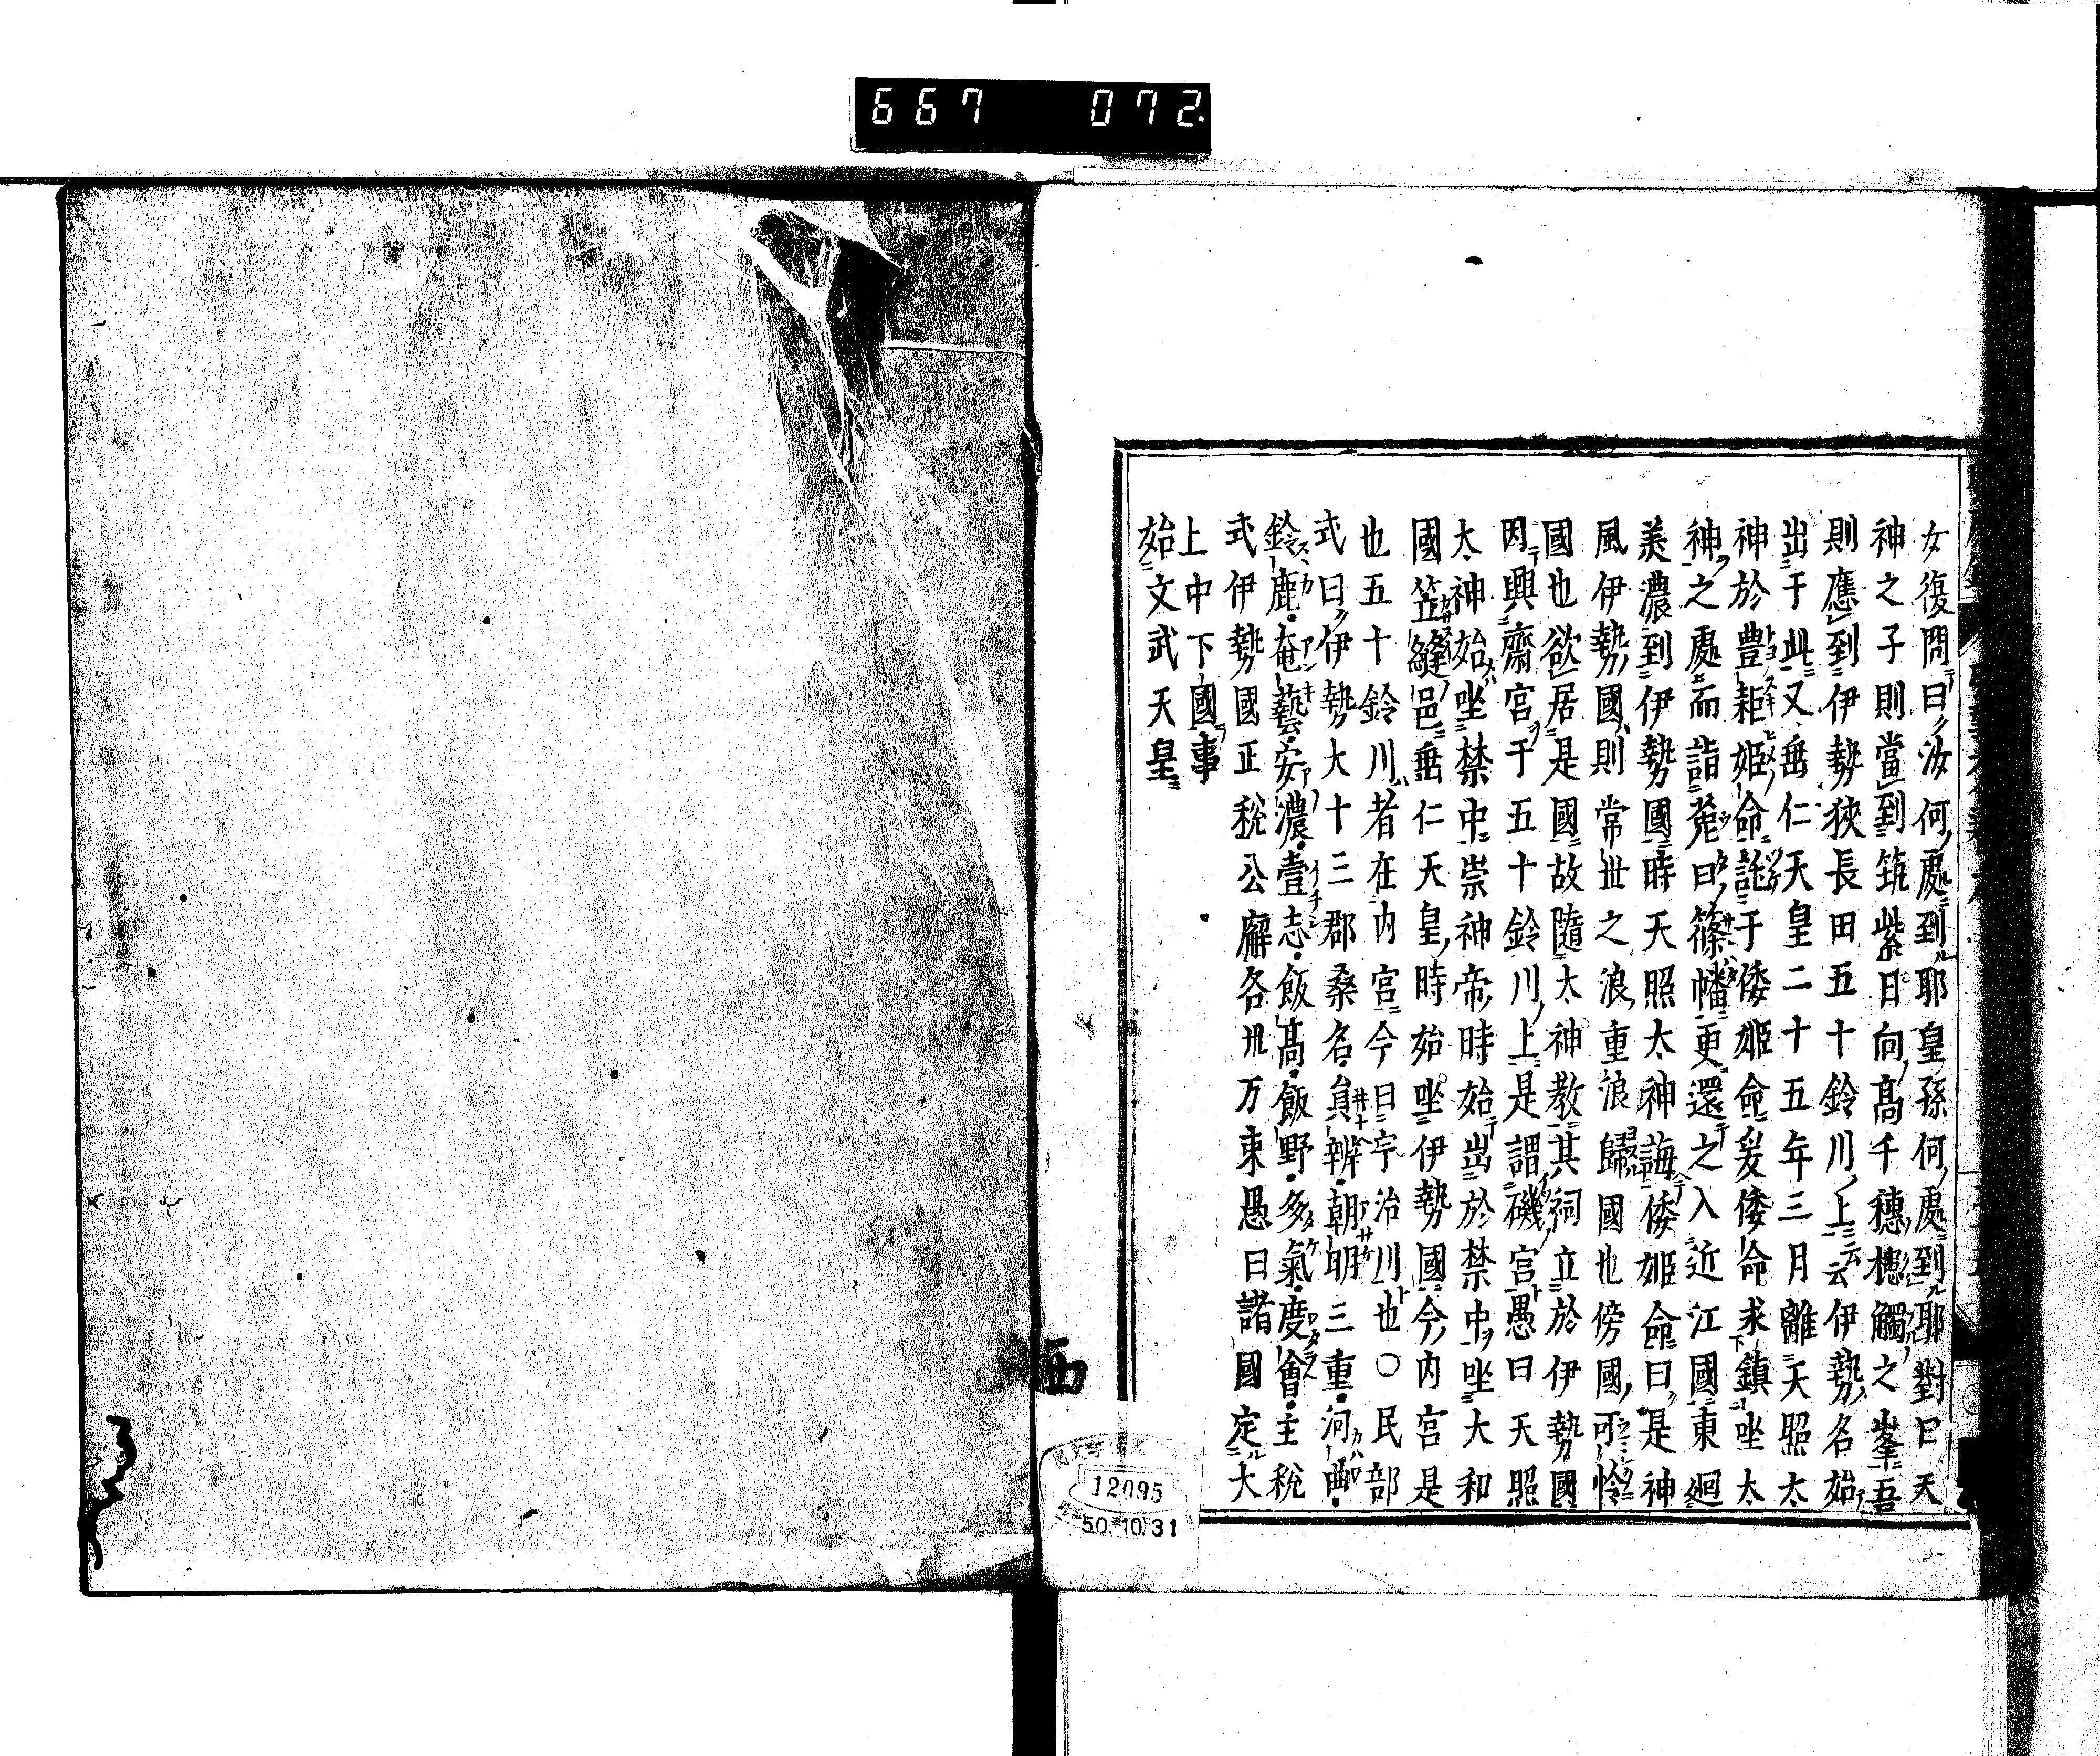 667 072
女復問曰汝何處到耶皇孫何處到耶對曰天
神之子則當到筑紫日向高千穗槵觸之峯吾
則應到伊勢狹長田五十鈴川上云云伊勢名始
出于此又垂仁天皇二十五年三月離天照太
神於豐耜姫命託于倭姫命爰倭命求鎮坐太
神之處而詣菟田篠幡更還之入近江國東廻
美濃到伊勢國時天照太神誨倭姫命曰是神
風伊勢國則常世之浪重浪歸國也傍國可怜
國也欲居是國故隨太神教其祠立於伊勢國
因興齋宮于五十鈴川上是謂磯宮愚曰天照
太神始坐禁中崇神帝時始出於禁中坐大和
國笠縫邑垂仁天皇時始坐伊勢國今内宮是
也五十鈴川者在内宮今曰宇治川也○民部
式曰伊勢大十三郡桑名員辨朝明三重河曲
鈴鹿奄藝安濃壹志飯高飯野多氣度會主税
式伊勢國正税公廨各卅万束愚曰諸國定大
上中下國事
始文武天皇
西
12095
50.10.31